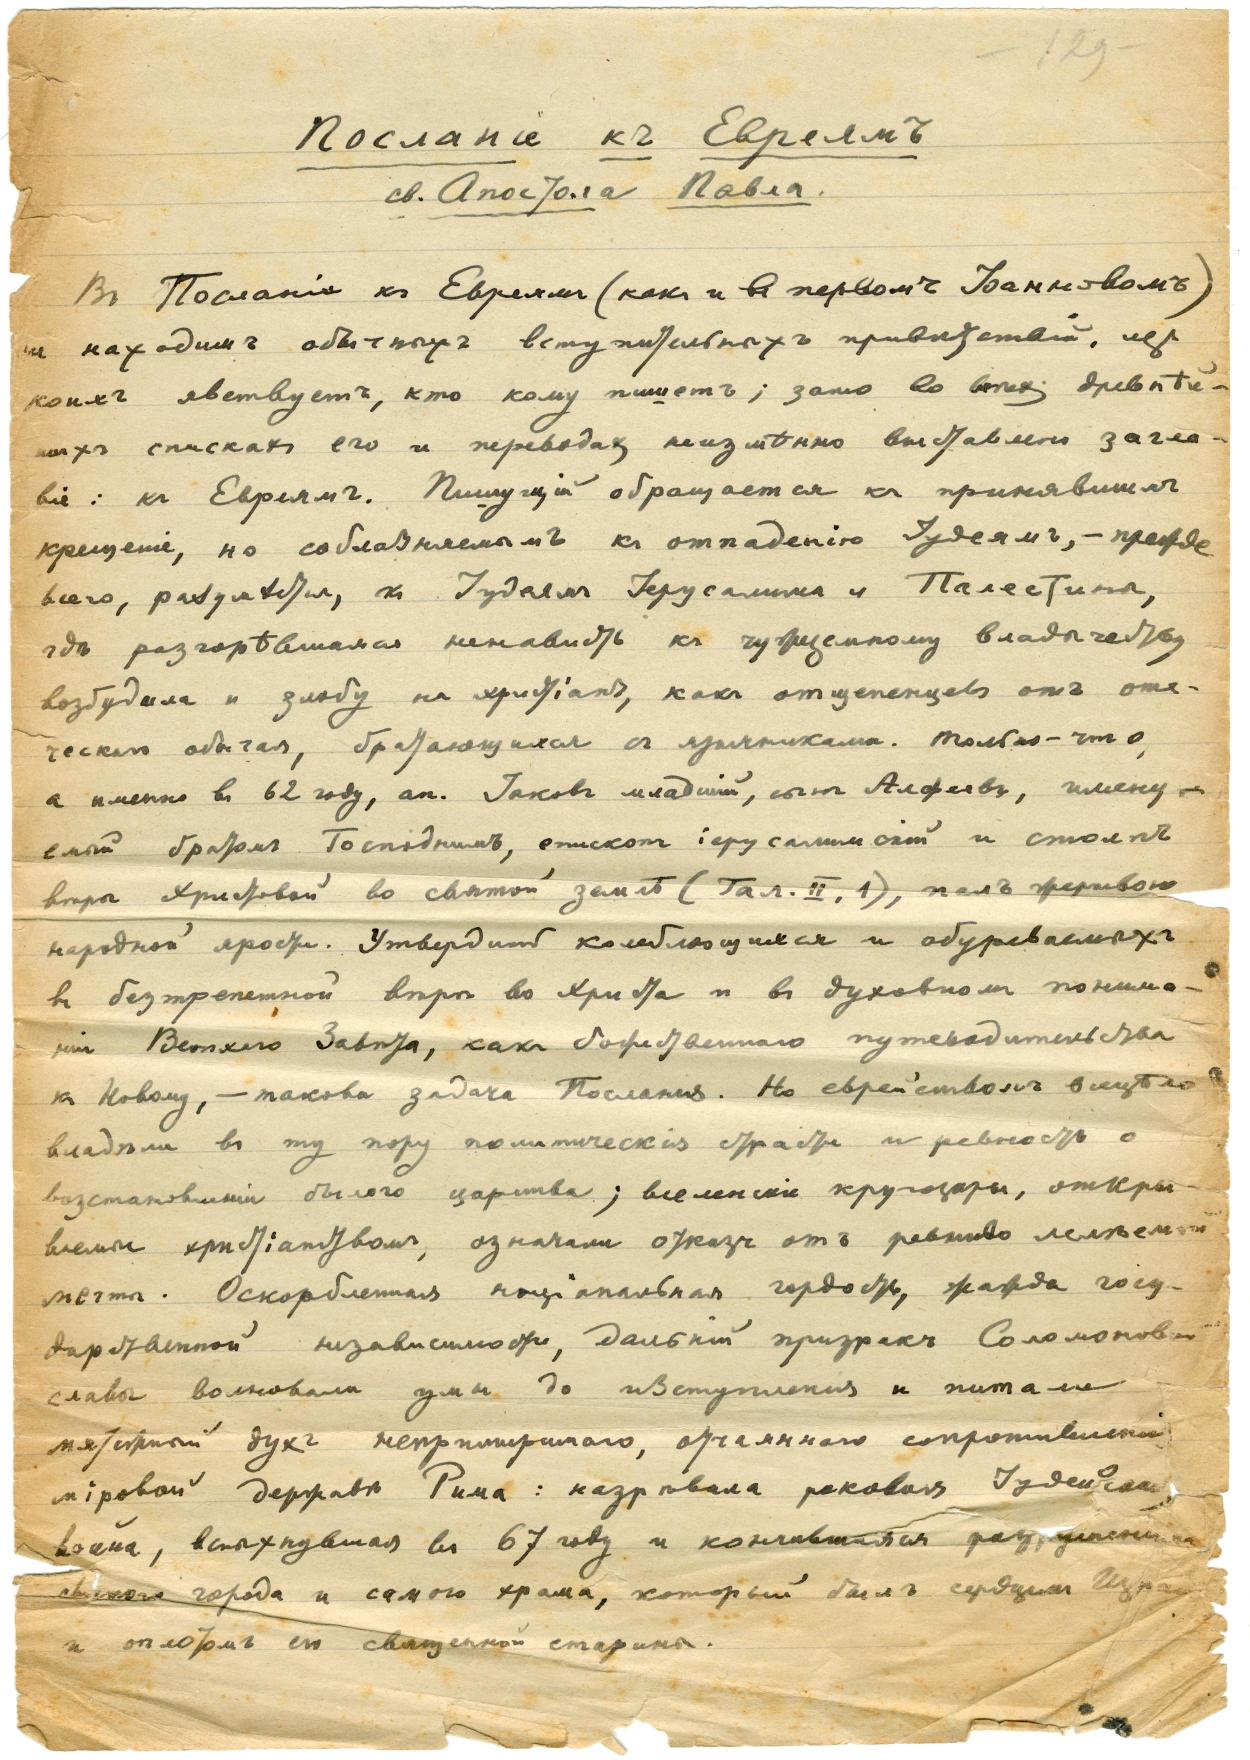 - 129 -
Посланіе къ Евреямъ
св. Апостола Павла.
Въ Посланіи къ Евреямъ (какъ и въ первомъ Іоанновомъ)
не находимъ обычныхъ вступительныхъ привѣтствій, изъ
коихъ явствуетъ, кто кому пишетъ; зато во всѣхъ древнѣй-
шихъ спискахъ его и переводахъ неизмѣнно выставлено загла-
віе: къ Евреямъ. Пишущій обращается къ принявшимъ
крещеніе, но соблазняемымъ къ отпаденію Іудеямъ, – прежде
всего, разумѣется, къ Іудеямъ Іерусалима и Палестины,
гдѣ разгорѣвшаяся ненависть къ чужеземному владычеству
возбудила и злобу на христіанъ, какъ отщепенцевъ отъ оте-
ческаго обычая, братающихся съ язычниками. Только-что,
а именно въ 62 году, ап. Іаковъ младшій, сынъ Алфеевъ, имену-
емый братомъ Господнимъ, епископъ іерусалимскій и столпъ
вѣры Христовой во святой землѣ (Гал. II, 9), палъ жертвою
народной ярости. Утвердить колеблющихся и обуреваемыхъ
въ безтрепетной вѣрѣ во Христа и въ духовномъ понима-
ніи Ветхаго Завѣта, какъ божественнаго путеводительства
къ Новому, – такова задача Посланія. Но еврействомъ всецѣло
владѣли въ ту пору политическія страсти и ревность о
возстановленіи былого царства; вселенскіе кругозоры, откры-
ваемые христіанствомъ, означали отказъ отъ ревниво лелѣемой
мечты. Оскорбленная національная гордость, жажда госу-
дарственной независимости, дальній призракъ Соломоновой
славы волновали умы до изступленія и питали
мятежный духъ непримиримаго, отчаяннаго сопротивленія
міровой державѣ Рима: назрѣвала роковая Іудейская
война, вспыхнувшая въ 67 году и кончившаяся разрушеніемъ
города и самого храма, который былъ сердцемъ
и оплотомъ его священной старины.